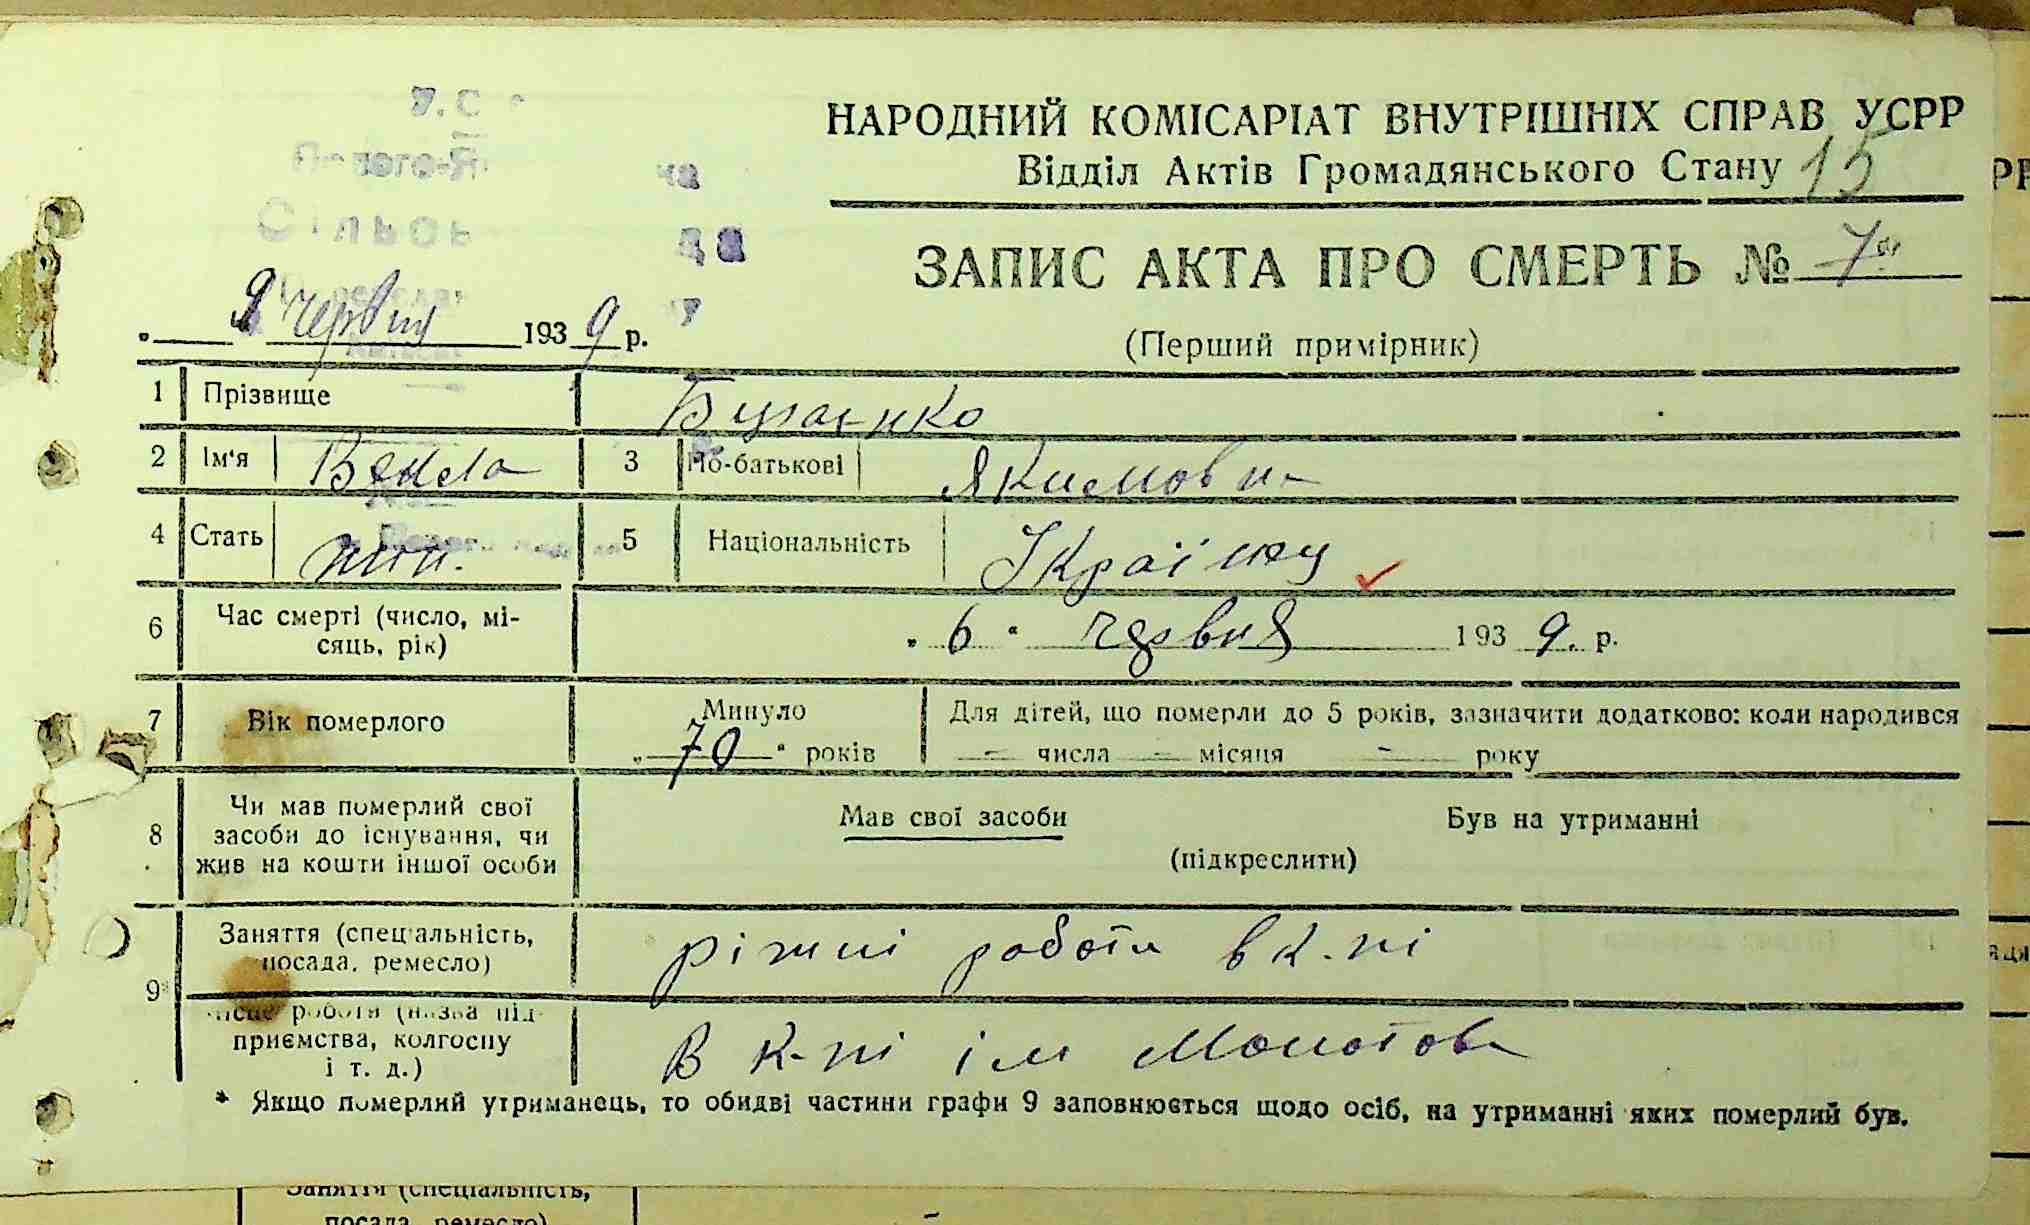 НАРОДНИЙ КОМІСАРІАТ ВНУТРІШНІХ СПРАВ УСРР
Відділ Актів Громадянського Стану 15
ЗАПИС АКТА ПРО СМЕРТЬ № 7
(Перший примірник)
червня 1939 р.
1 Прізвище
2 Ім'я Векла 3 По-батькові Якимовна
4 Стать жін. 5 Національність Українц
6 Час смерті (число, мі-
сяць, рік) „6" червня 1939. р.
7 Вік померлого Минуло „70" років
Для дітей, що померли до 5 років, зазначити додатково: коли народився
— числа — місяця — року
8 Чи мав померлий свої
засоби до існування, чи
жив на кошти іншої особи
Мав свої засоби Був на утриманні
(підкреслити)
9* Заняття (спеціальність,
посада, ремесло) ріжні роботи в к-пі
місце роботи (назва під-
приємства, колгоспу
і т. д.) В к-пі ім Молотова
* Якщо померлий утриманець, то обидві частини графи 9 заповнюється щодо осіб, на утриманні яких померлий був.
Заняття (спеціальність,
посада, ремесло)